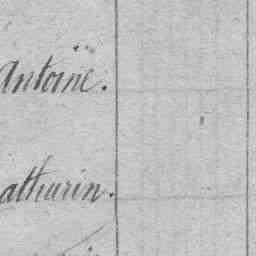 Antoine.
athurin.